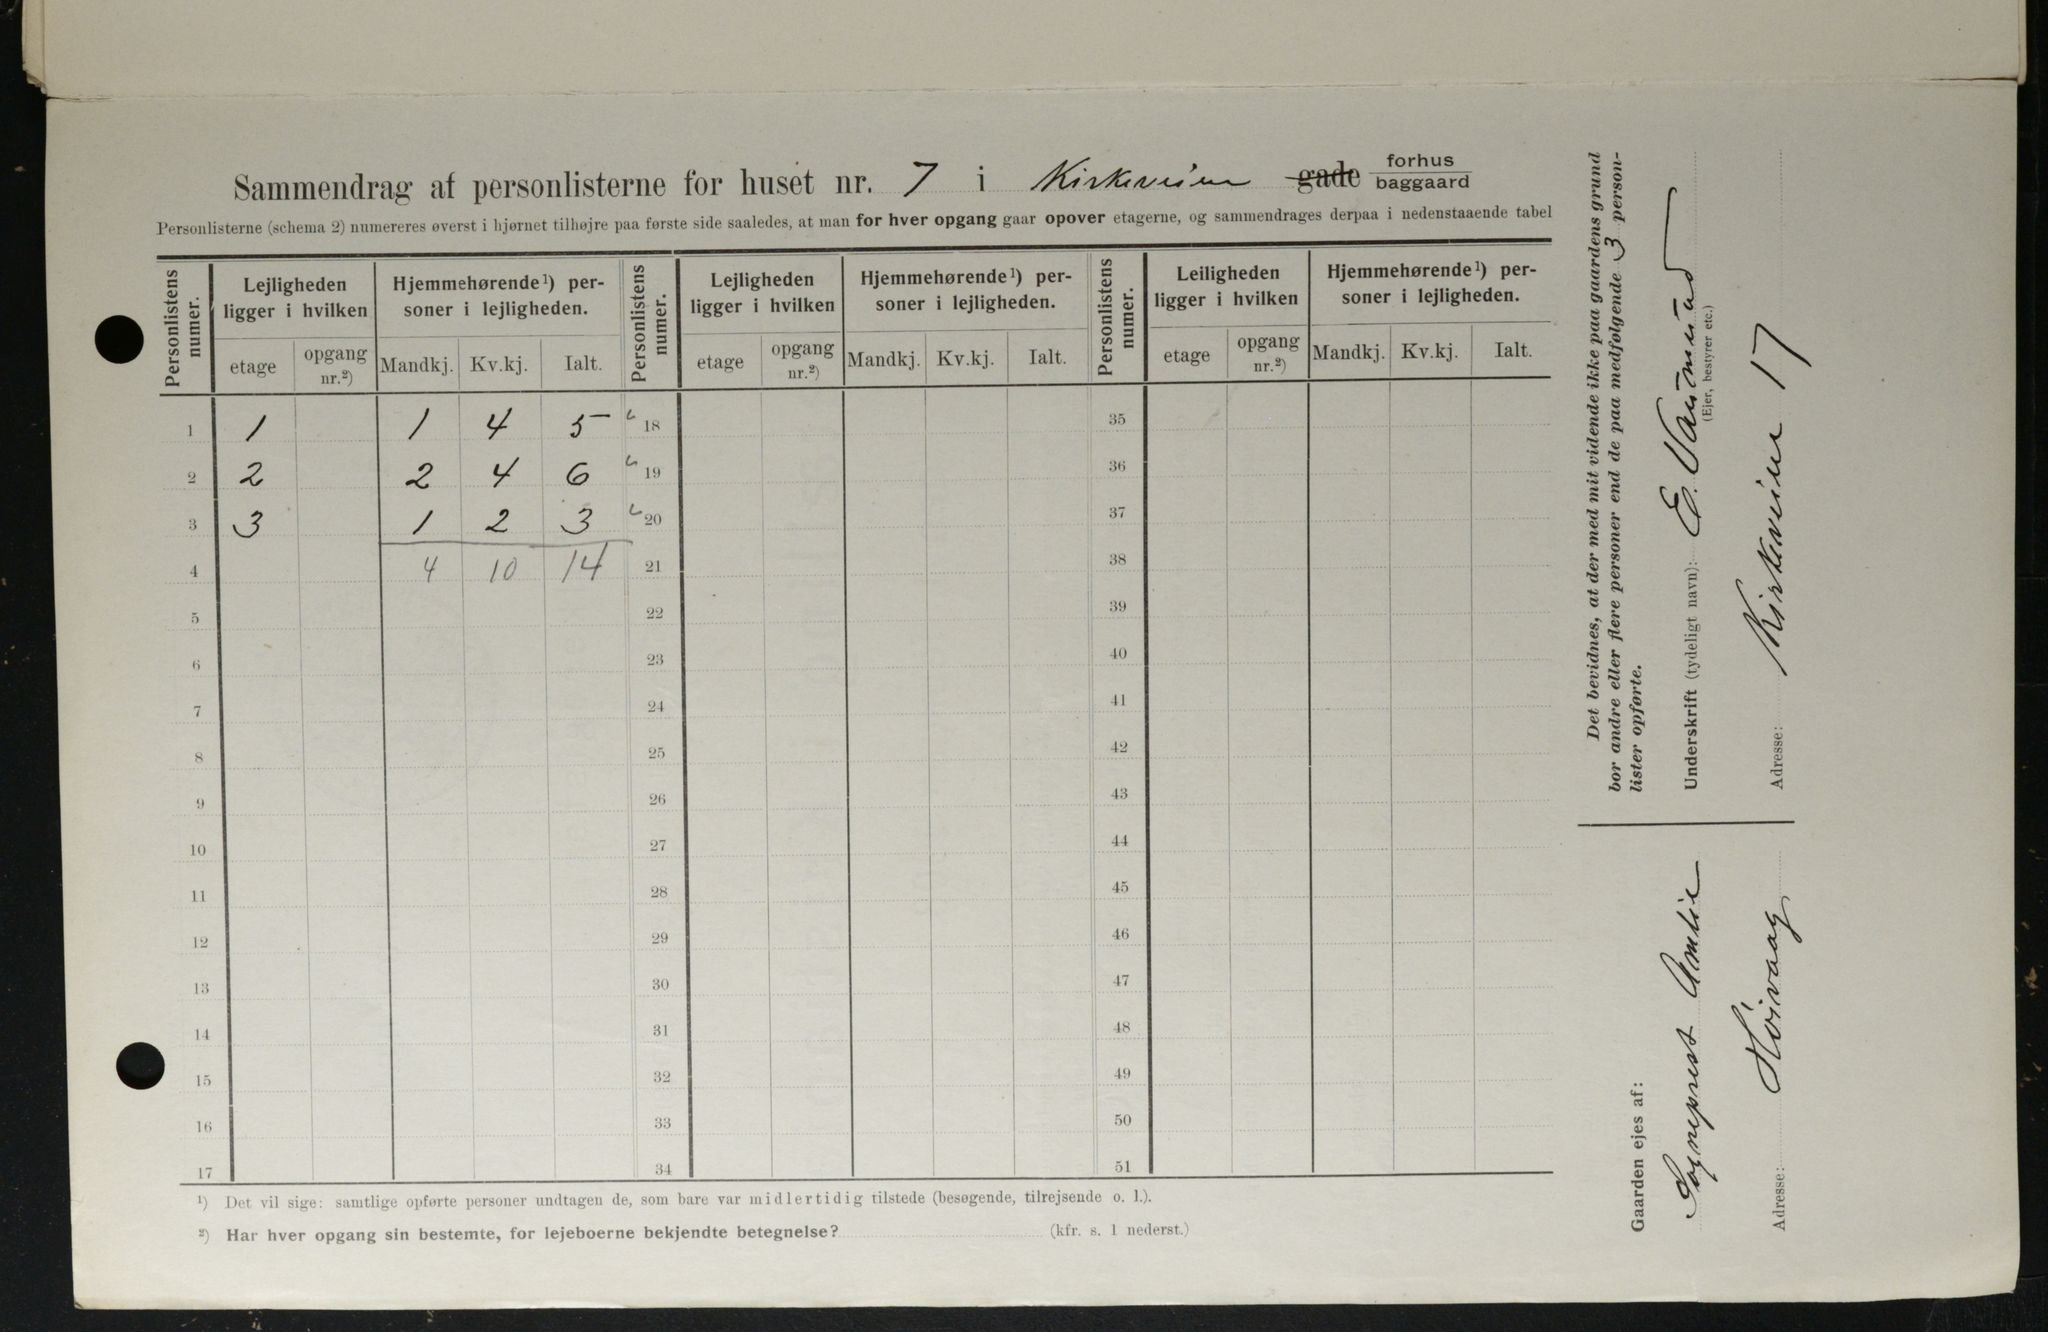 Sammendrag af personlisterne for huset nr. 7 i Kirkeveien gade forhus baggaard
Personlisterne (schema 2) numereres øverst i hjørnet tilhøjre paa første side saaledes, at man for hver opgang gaar opover etagerne, og sammendrages derpaa i nedenstaaende tabel
Personlistens numer. Lejligheden ligger i hvilken Hjemmehørende¹) personer i lejligheden. Personlistens numer. Lejligheden ligger i hvilken Hjemmehørende¹) personer i lejligheden. Personlistens numer. Leiligheden ligger i hvilken Hjemmehørende¹) personer i lejligheden.
etage opgang nr.²) Mandkj. Kv.kj. Ialt. etage opgang nr.²) Mandkj. Kv.kj. Ialt. etage opgang nr.²) Mandkj. Kv.kj. Ialt.
1 1 1 4 5 18 35
2 2 2 4 6 19 36
3 3 1 2 3 20 37
4 4 10 14 21 38
5 22 39
6 23 40
7 24 41
8 25 42
9 26 43
10 27 44
11 28 45
12 29 46
13 30 47
14 31 48
15 32 49
16 33 50
17 34 51
¹) Det vil sige: samtlige opførte personer undtagen de, som bare var midlertidig tilstede (besøgende, tilrejsende o. l.).
²) Har hver opgang sin bestemte, for lejeboerne bekjendte betegnelse? (kfr. s. 1 nederst.)
Det bevidnes, at der med mit vidende ikke paa gaardens grund
bor andre eller flere personer end de paa medfølgende 3 person-
lister opførte.
Underskrift (tydeligt navn): E.
(Ejer, bestyrer etc.)
Adresse: Kirkeveien 17
Gaarden ejes af:
Sogneprest Amlie
Adresse: Høivaag